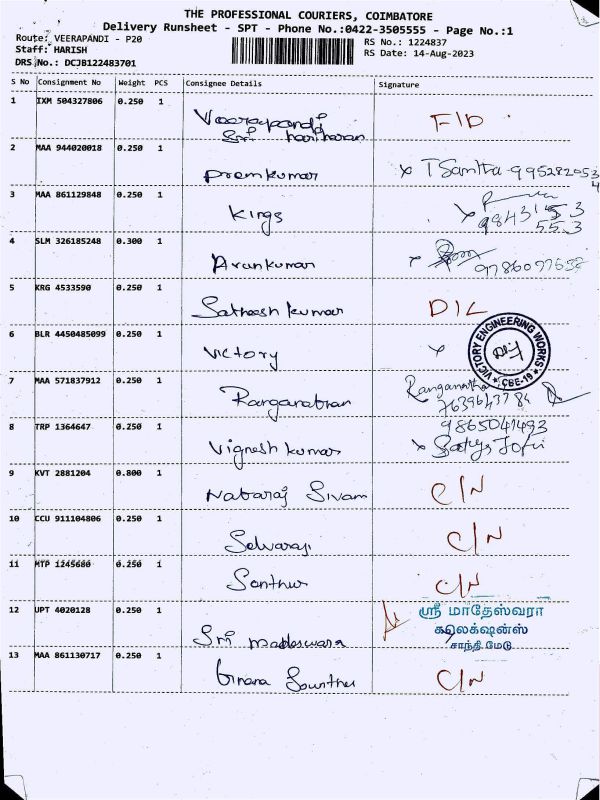 THE PROFESSIONAL COURIERS, COIMBATORE
Delivery Runsheet - SPT - Phone No.:0422-3505555 - Page No.:1
Route: VEERAPANDI - P20
RS No.: 1224837
Staff: HARISH
RS Date: 14-Aug-2023
DRS No.: DCJB122483701
S No Consignment No Weight PCS Consignee Details Signature
1 IXM 504327806 0.250 1 Veerapandi F/D
Sri hariharan
2 MAA 944020018 0.250 1 Premkumar
3 MAA 861129848 0.250 1 Kings
4 SLM 326185248 0.300 1 Arunkumar
5 KRG 4533590 0.250 1 Satheesh kumar D/L
6 BLR 4450485099 0.250 1 Victory VICTORY ENGINEERING WORKS CBE-19
7 MAA 571837912 0.250 1 Ranganathan Ranganatha
7639643784
8 TRP 1364647 0.250 1 Vignesh kumar 9865041493
9 KVT 2881204 0.800 1 Nataraj Sivam C/N
10 CCU 911104806 0.250 1 Selvaraj C/N
11 MTP 1245680 0.250 1 C/N
12 UPT 4020128 0.250 1 Sri madeswara ஸ்ரீ மாதேஸ்வரா
கலெக்ஷன்ஸ்
சாந்தி மேடு
13 MAA 861130717 0.250 1 C/N